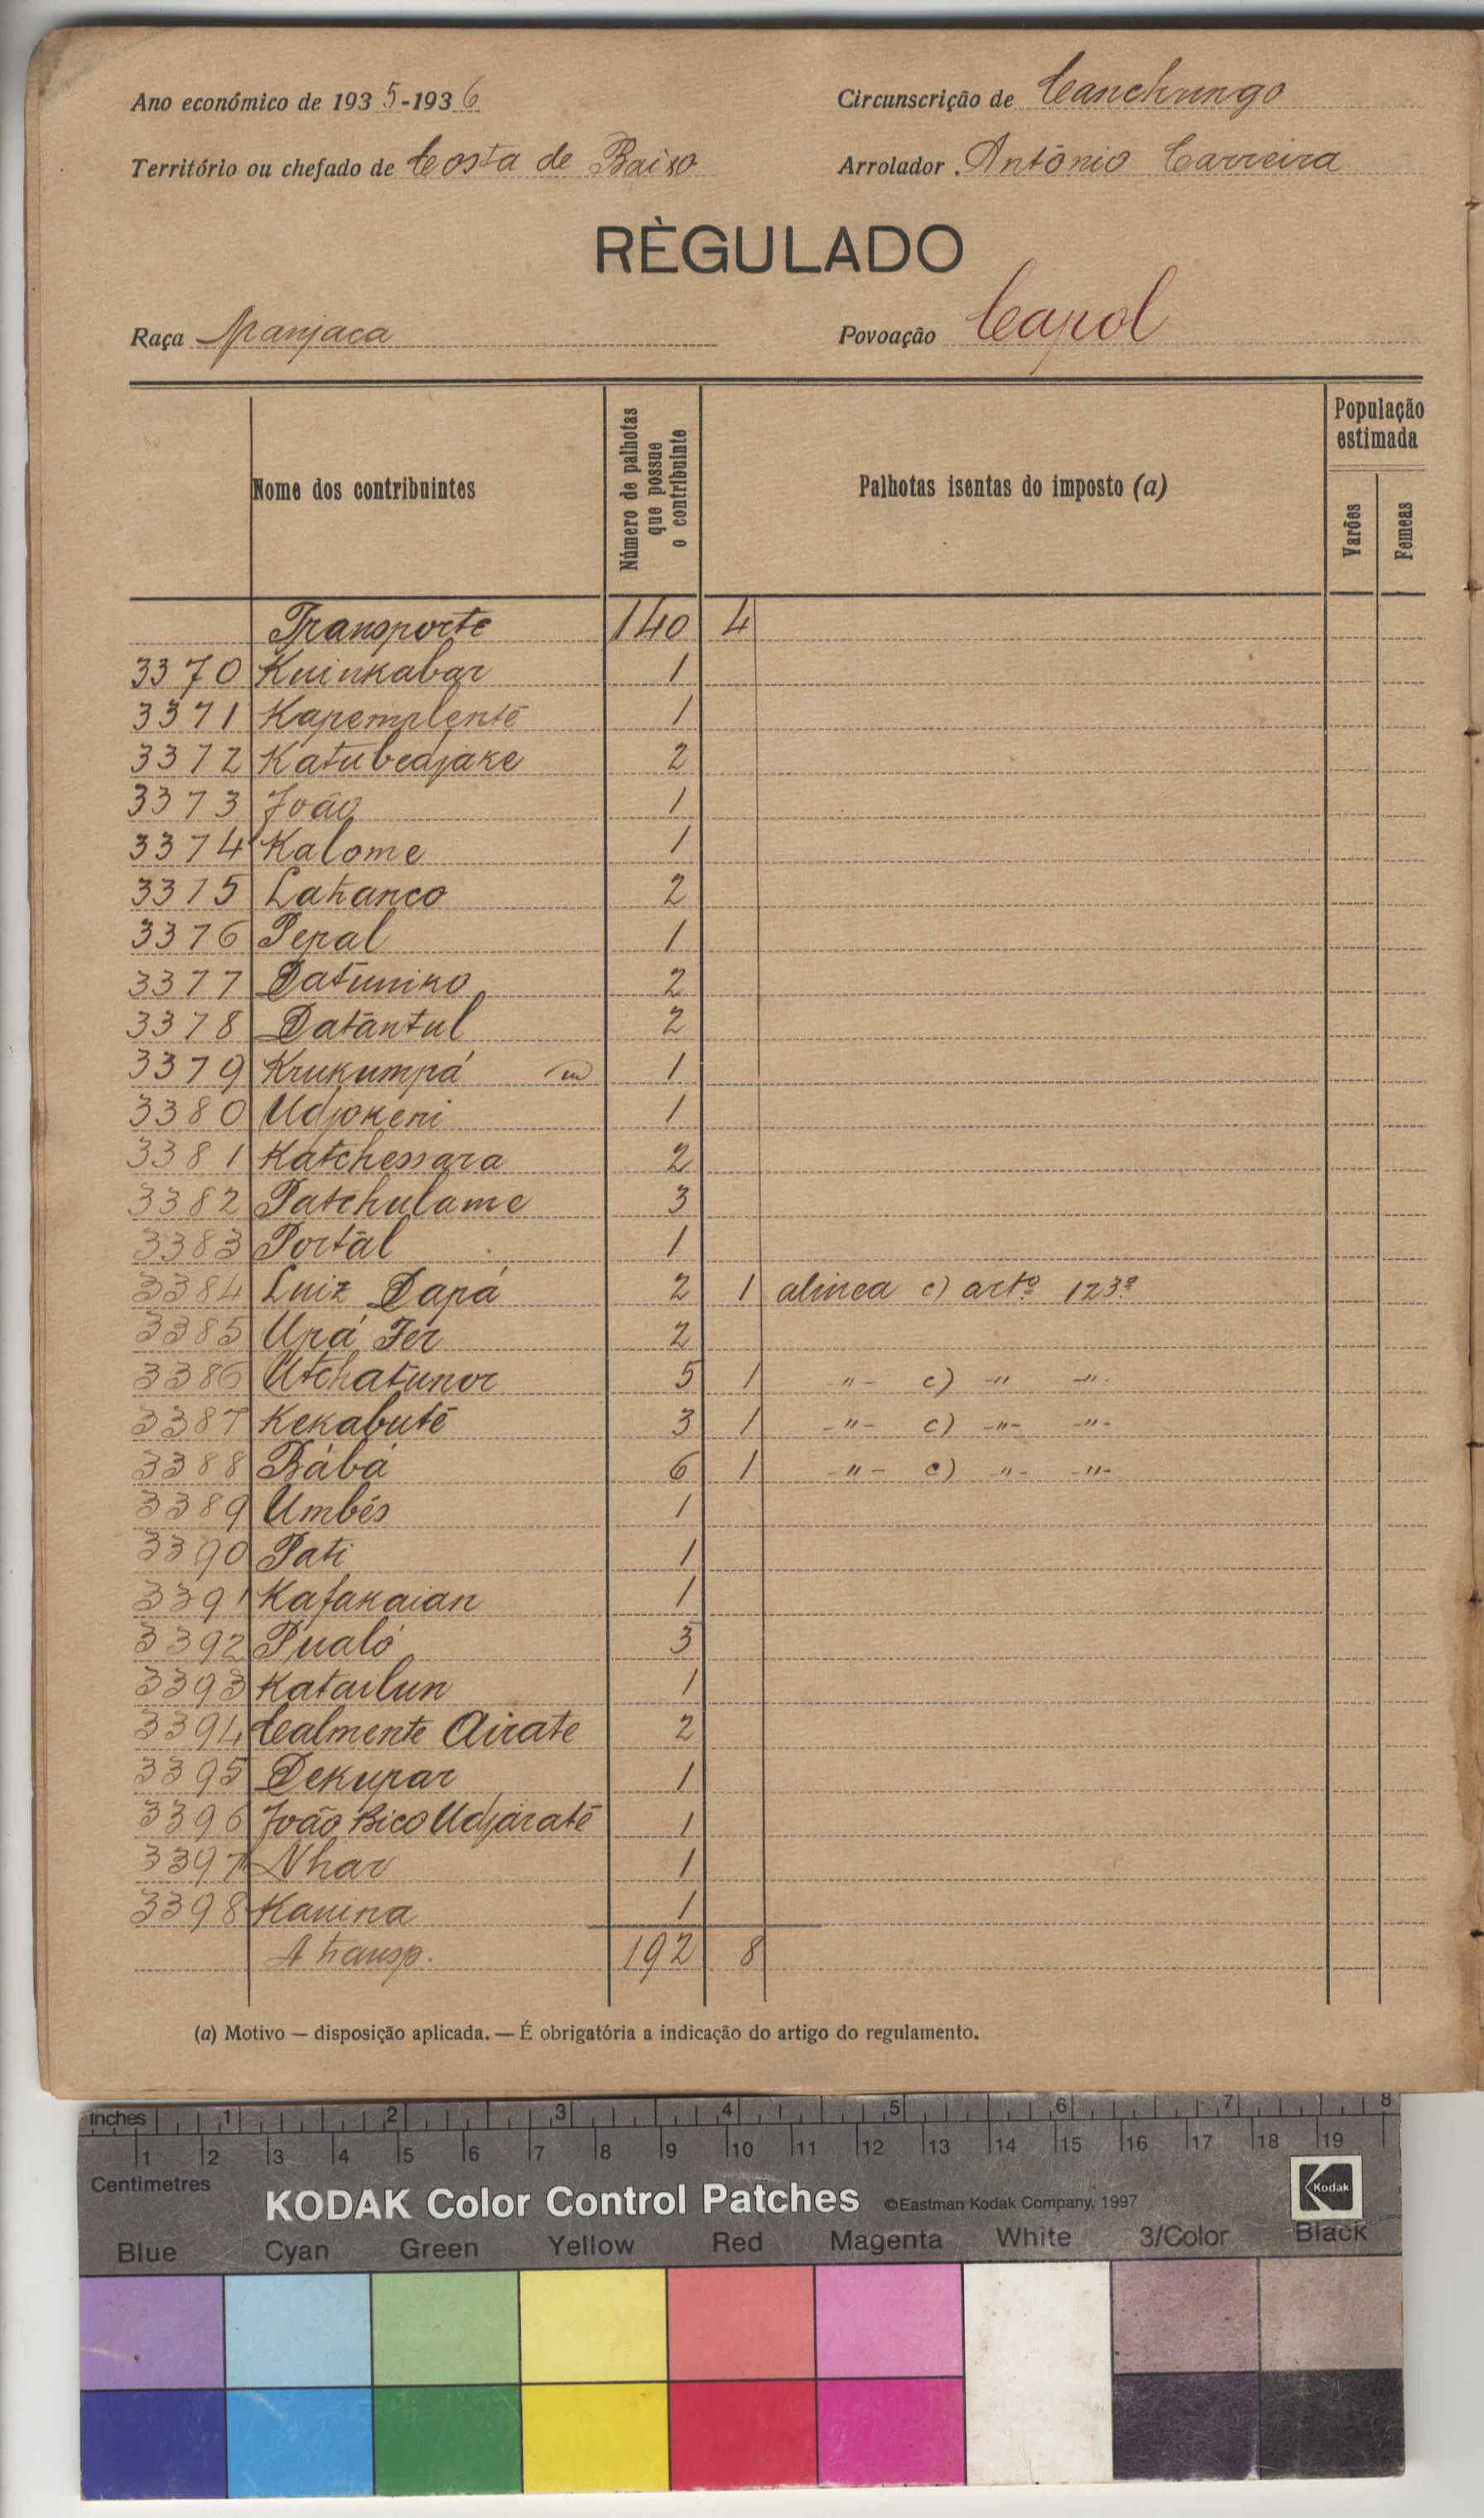 Ano económico de 1935-1936 Circunscrição de Canchungo
Território ou chefado de Costa de Baixo Arrolador António Carreira
RÈGULADO
Raça Manjaca Povoação Capol
Nome dos contribuintes
Número de palhotas que possue o contribuinte
Palhotas isentas do imposto (a)
População estimada
Varões
Femeas
Transporte 140 4
3370 Kuinkabar 1
3371 Kapemplenté 1
3372 Katubedjake 2
3373 João 1
3374 Kalome 1
3375 Lahanco 2
3376 Pepal 1
3377 Datuniko 2
3378 Datantul 2
3379 Krukumpá 1
3380 Udjokeni 1
3381 Katchessara 2
3382 Patchulame 3
3383 Portal 1
3384 Luiz Dapá 2 1 alinea c) artº 123º
3385 Upá Fer 2
3386 Utchatunor 5 1 -"- c) -" -".
3387 Kekabuté 3 1 -"- c) -"- -"-
3388 Bábá 6 1 -"- c) -"- -"-
3389 Umbés 1
3390 Pati 1
3391 Kafakaian 1
3392 Pualó 3
3393 Katailun 1
3394 Calmente Airate 2
3395 Dekupar 1
3396 João Bico Udjáraté 1
3397 Nhar 1
3398 Kanina 1
A transp. 192 8
(a) Motivo — disposição aplicada. — É obrigatória a indicação do artigo do regulamento.
inches 1 2 3 4 5 6 7 8
1 2 3 4 5 6 7 8 9 10 11 12 13 14 15 16 17 18 19
Centimetres
KODAK Color Control Patches ©Eastman Kodak Company, 1997 Kodak
Blue Cyan Green Yellow Red Magenta White 3/Color Black